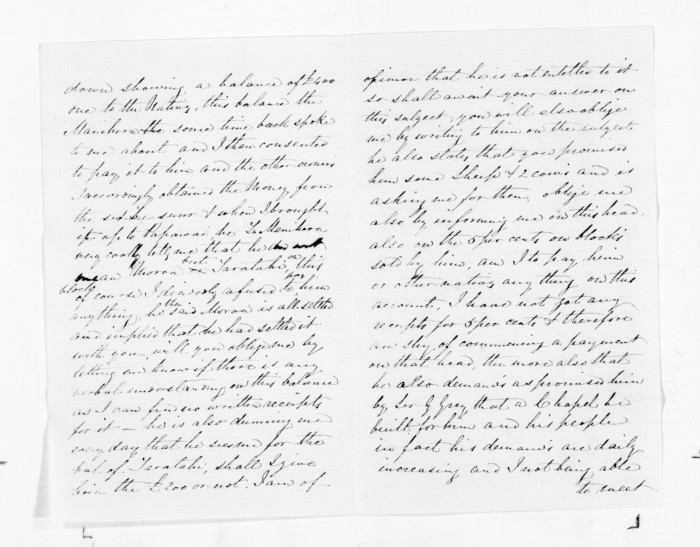 down showing a balance of £400
one to the Natives, this balance the
Manihera the some time back spoke
to me about and I then consented
to pay it to him and the other owners
I accordingly obtained the Money from
the and when I brought
it up to Papawai he Te Manihera
very coolly tells me that he
an Moroa but Taratahi, on this
block
of course I directly refused to him
anything, he then said Moroa is all settled
and implied that he had settled it
with you, will you oblige me by
letting me know if there is any
verbal understanding on this balance
as I can find no written receipts
for it — he is also dunning me
every day that he sees me for the
bal. of Taratahi, shall I give
him the £200 or not. I am of
opinion that he is not entitled to it
so shall await your answer on
this subject, you will also oblige
me by writing to him on the subject
he also states that you promised
him some Sheep & 2 cows and is
asking me for them, oblige me
also by informing me on this head.
also on the 5 per cents on blocks
sold by him, am I to pay him
or other natives any thing on this
account, I have not got any
receipts for 5 per cents & therefore
am shy of commencing a payment
on that head, the more also that
he also demands as promised him
by Sir G Grey that a Chapel be
built for him and his people
in fact his demands are daily
increasing and I not being able
to meet